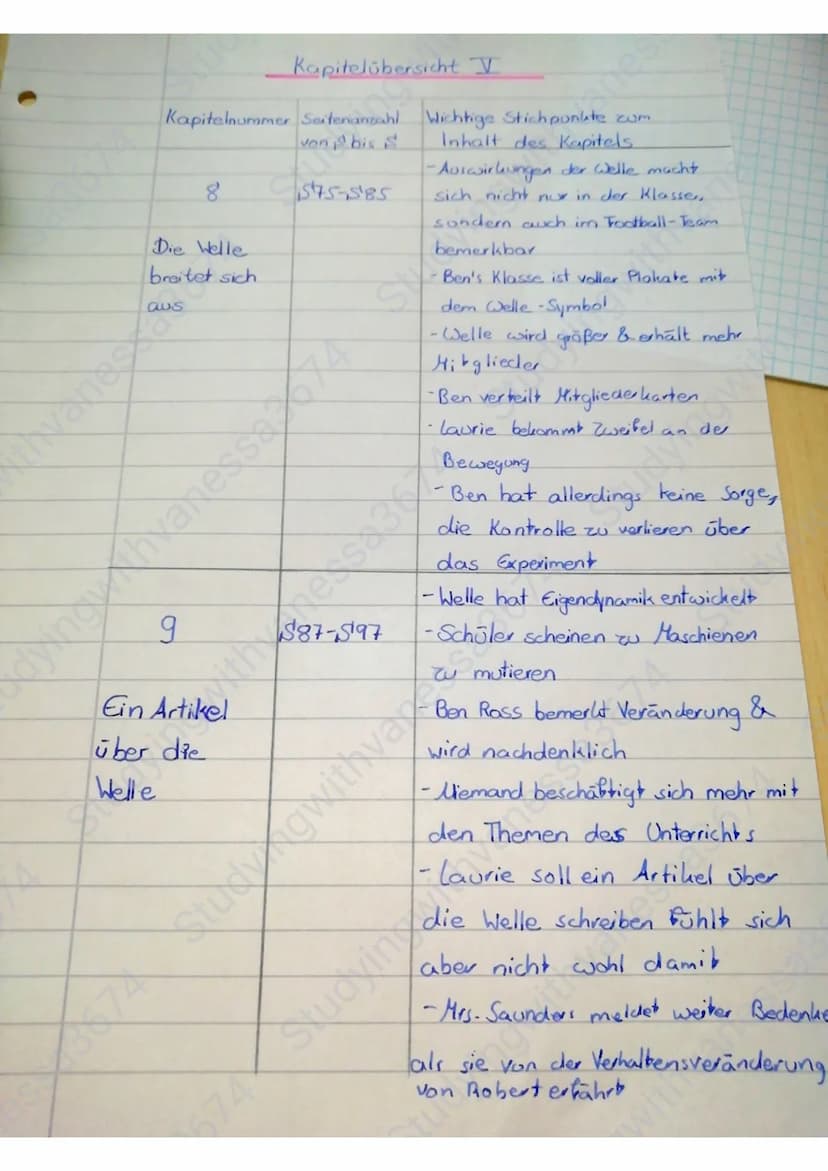 Kapitelübersicht V
Kapitelnummer
Seitenanzahl
von S bis S
Wichtige Stichpunkte zum
Inhalt des Kapitels
8
Die Welle
breitet sich
aus
S75-S85
-Auswirkungen der Welle macht
sich nicht nur in der Klasse,
sondern auch im Football-Team
bemerkbar
-Ben's Klasse ist voller Plakate mit
dem Welle-Symbol
-Welle wird größer & erhält mehr
Mitglieder
-Ben verteilt Mitgliederkarten
-Laurie bekommt Zweifel an der
Bewegung
-Ben hat allerdings keine Sorge,
die Kontrolle zu verlieren über
das Experiment
9
Ein Artikel
über die
Welle
S87-S97
-Welle hat Eigendynamik entwickelt
-Schüler scheinen zu Maschienen
zu mutieren
-Ben Ross bemerkt Veränderung &
wird nachdenklich
-Niemand beschäftigt sich mehr mit
den Themen des Unterrichts
-Laurie soll ein Artikel über
die Welle schreiben fühlt sich
aber nicht wohl damit
-Mrs. Saunders meldet weiter Bedenke
als sie von der Verhaltensveränderung
von Robert erfährt
Studyingwithvanessa3674